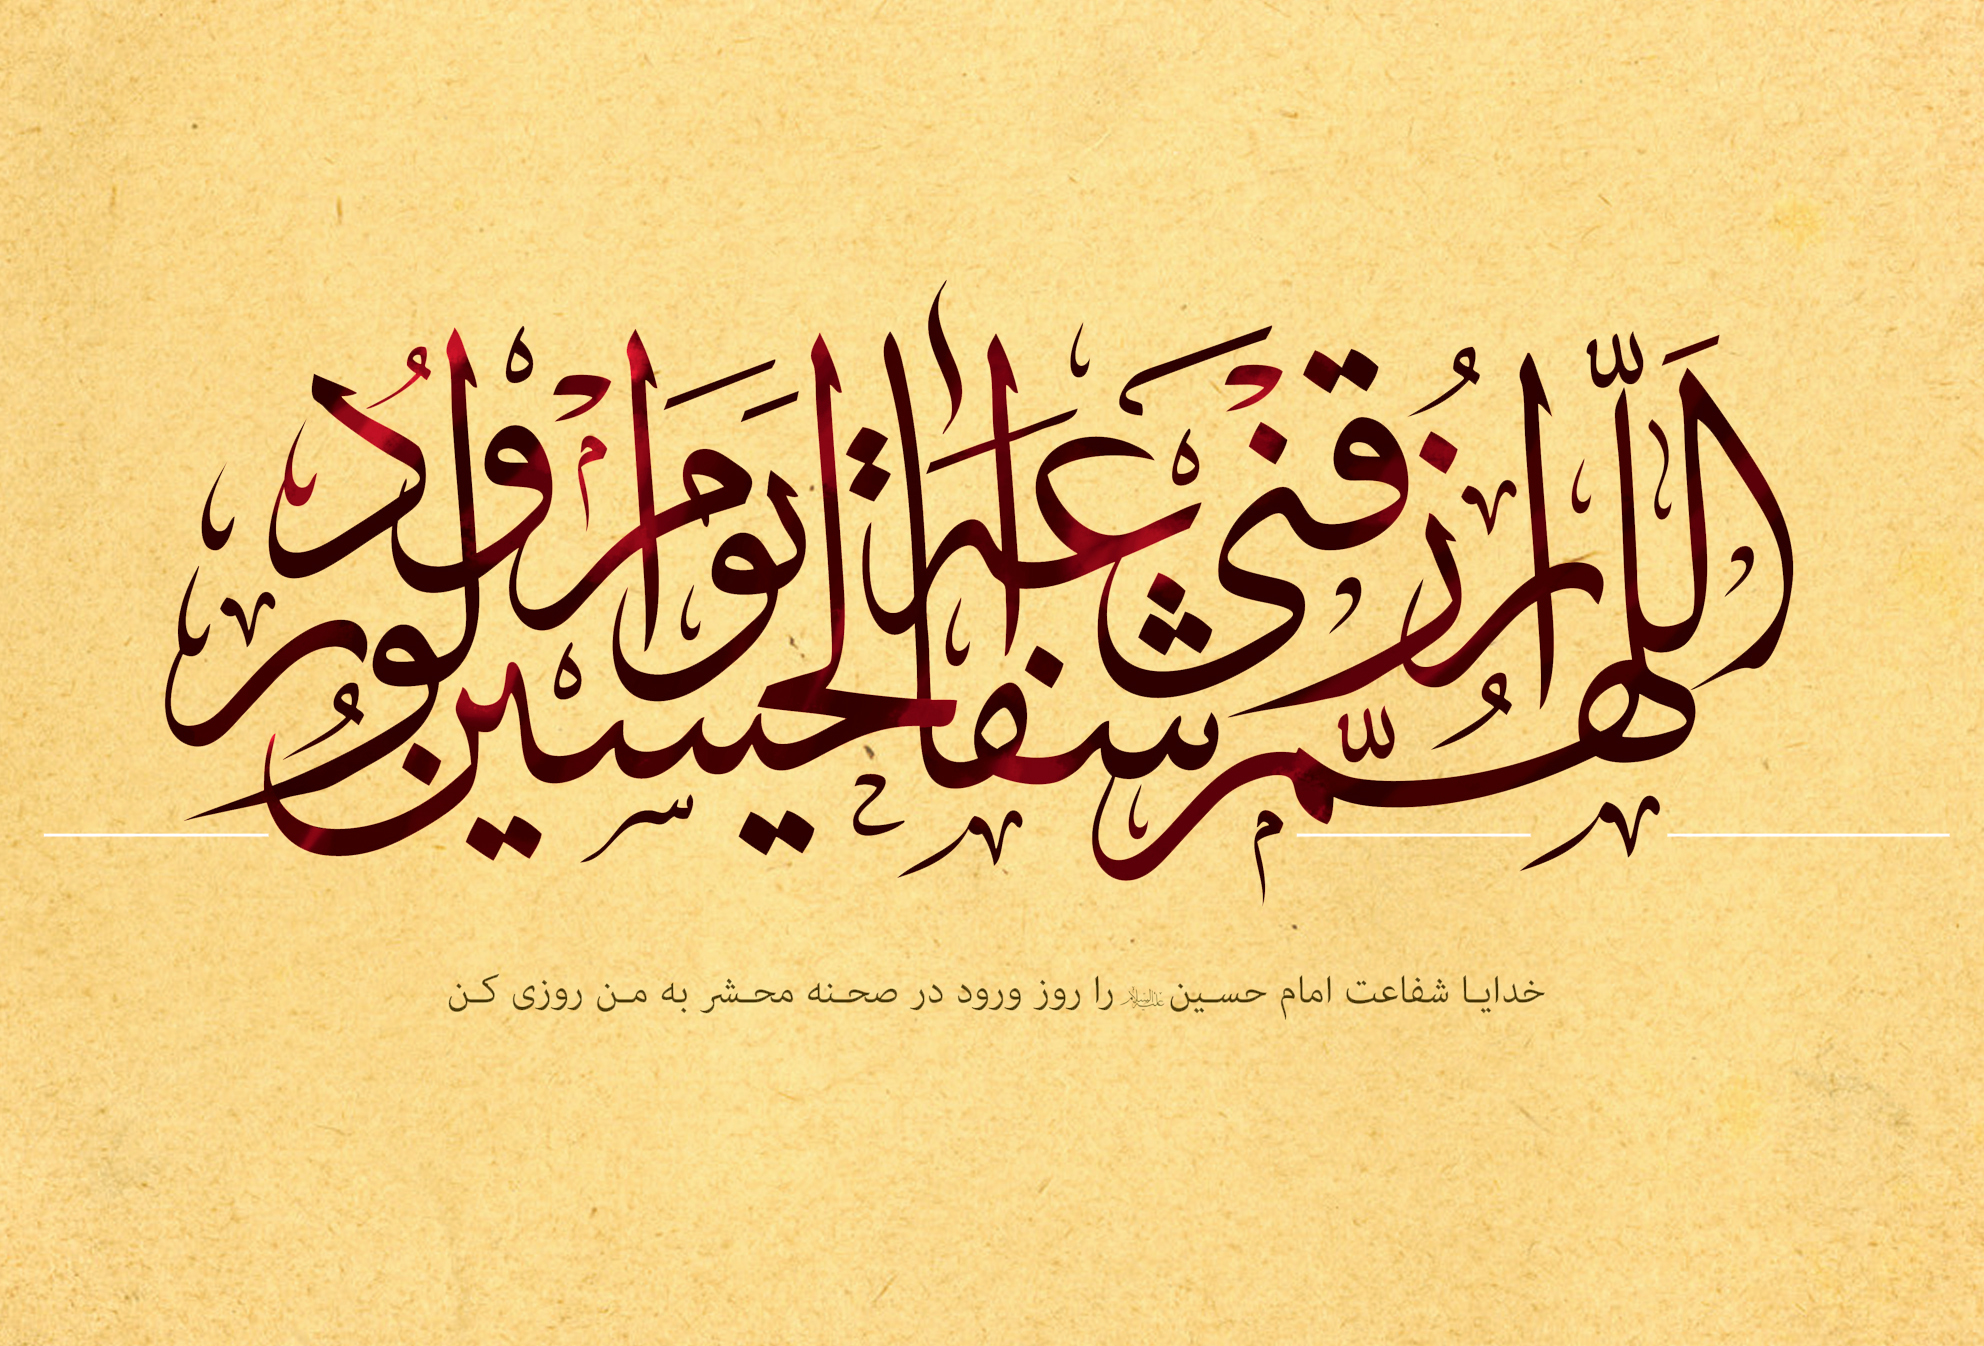 اللهم ارزقنی شفاعة الحسین یوم الورود
خدایا شفاعت امام حسین علیه‌السلام را روز ورود در صحنه محشر به من روزی کن